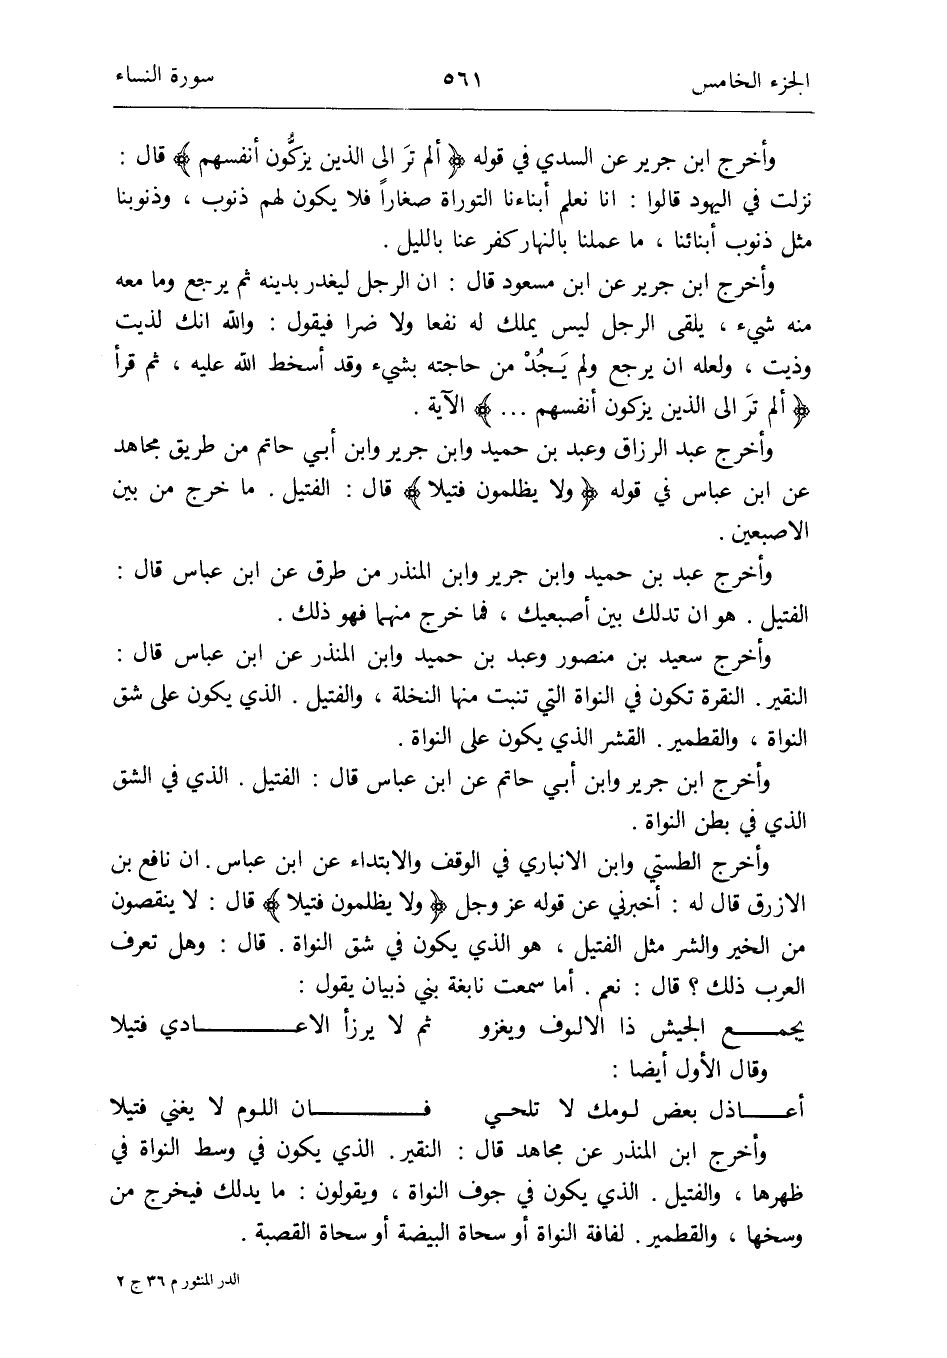 الجزء الخامس ٥٦١ سورة النساء
وأخرج ابن جرير عن السدي في قوله ﴿ ألم ترَ الى الذين يزكُّون أنفسهم ﴾ قال :
نزلت في اليهود قالوا : انا نعلم أبناءنا التوراة صغاراً فلا يكون لهم ذنوب ، وذنوبنا
مثل ذنوب أبنائنا ، ما عملنا بالنهار كفر عنا بالليل .
وأخرج ابن جرير عن ابن مسعود قال : ان الرجل ليغدر بدينه ثم يرجع وما معه
منه شيء ، يلقى الرجل ليس يملك له نفعا ولا ضرا فيقول : والله انك لذيت
وذيت ، ولعله ان يرجع ولم يَجُدْ من حاجته بشيء وقد أسخط الله عليه ، ثم قرأ
﴿ ألم ترَ الى الذين يزكون أنفسهم ... ﴾ الآية .
وأخرج عبد الرزاق وعبد بن حميد وابن جرير وابن أبي حاتم من طريق مجاهد
عن ابن عباس في قوله ﴿ ولا يظلمون فتيلا ﴾ قال : الفتيل . ما خرج من بين
الاصبعين .
وأخرج عبد بن حميد وابن جرير وابن المنذر من طرق عن ابن عباس قال :
الفتيل . هو ان تدلك بين أصبعيك ، فما خرج منهما فهو ذلك .
وأخرج سعيد بن منصور وعبد بن حميد وابن المنذر عن ابن عباس قال :
النقير . النقرة تكون في النواة التي تنبت منها النخلة ، والفتيل . الذي يكون على شق
النواة ، والقطمير . القشر الذي يكون على النواة .
وأخرج ابن جرير وابن أبي حاتم عن ابن عباس قال : الفتيل . الذي في الشق
الذي في بطن النواة .
وأخرج الطستي وابن الانباري في الوقف والابتداء عن ابن عباس . ان نافع بن
الازرق قال له : أخبرني عن قوله عز وجل ﴿ ولا يظلمون فتيلا ﴾ قال : لا ينقصون
من الخير والشر مثل الفتيل ، هو الذي يكون في شق النواة . قال : وهل تعرف
العرب ذلك ؟ قال : نعم . أما سمعت نابغة بني ذبيان يقول :
يجمـــع الجيش ذا الالوف ويغزو ثم لا يرزأ الاعـــــادي فتيلا
وقال الأول أيضا :
أعـــاذل بعض لومك لا تلحي فـــــــان اللوم لا يغني فتيلا
وأخرج ابن المنذر عن مجاهد قال : النقير . الذي يكون في وسط النواة في
ظهرها ، والفتيل . الذي يكون في جوف النواة ، ويقولون : ما يدلك فيخرج من
وسخها ، والقطمير . لفافة النواة أو سحاة البيضة أو سحاة القصبة .
الدر المنثور م ٣٦ ج ٢